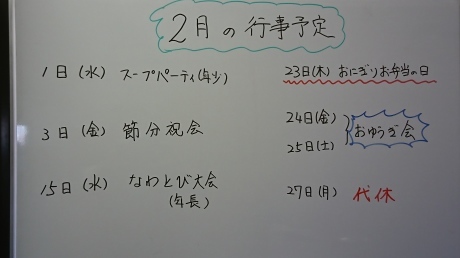 2月の行事予定
1日(水) スープパーティ(年少)
3日(金) 節分祝会
15日(水) なわとび大会
(年長)
23日(木) おにぎりお弁当の日
24日(金)
25日(土)
おゆうぎ会
27日(月) 代休